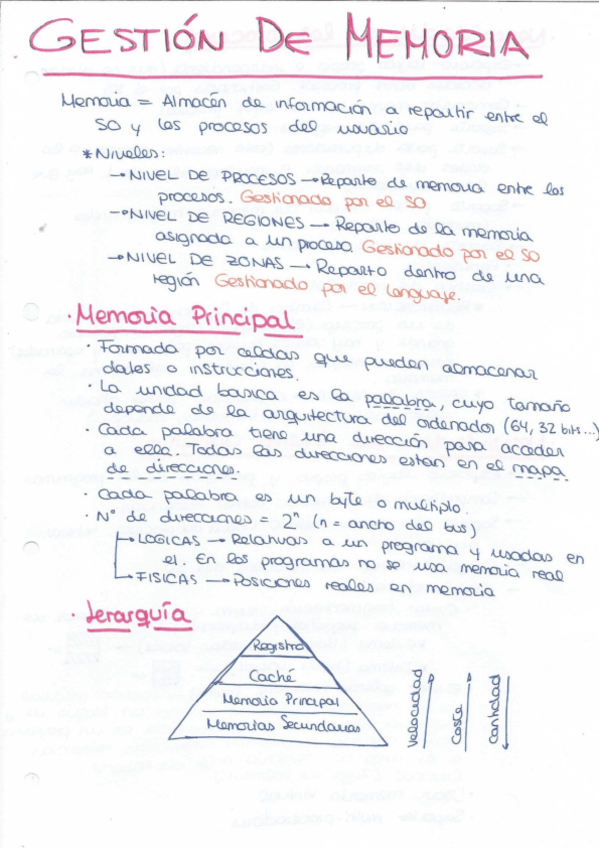 GESTIÓN DE MEMORIA
Memoria = Almacén de información a repartir entre el
SO y los procesos del usuario
* Niveles:
→ NIVEL DE PROCESOS → Reparto de memoria entre los
procesos. Gestionado por el SO
→ NIVEL DE REGIONES → Reparto de la memoria
asignada a un proceso Gestionado por el SO
→ NIVEL DE ZONAS → Reparto dentro de una
región Gestionado por el lenguaje.
· Memoria Principal
· Formada por celdas que pueden almacenar
datos o instrucciones.
· La unidad basica es la palabra, cuyo tamaño
depende de la arquitectura del ordenador (64, 32 bits...)
· Cada palabra tiene una dirección para acceder
a ella. Todas las direcciones estan en el mapa
de direcciones.
· Cada palabra es un byte o multiplo.
· Nº de direcciones = 2ⁿ (n = ancho del bus)
→ LOGICAS → Relativas a un programa y usadas en
el. En los programas no se usa memoria real
→ FISICAS → Posiciones reales en memoria
· Jerarquía
Registro
Caché
Memoria Principal
Memorias Secundarias
Velocidad
Coste
Cantidad